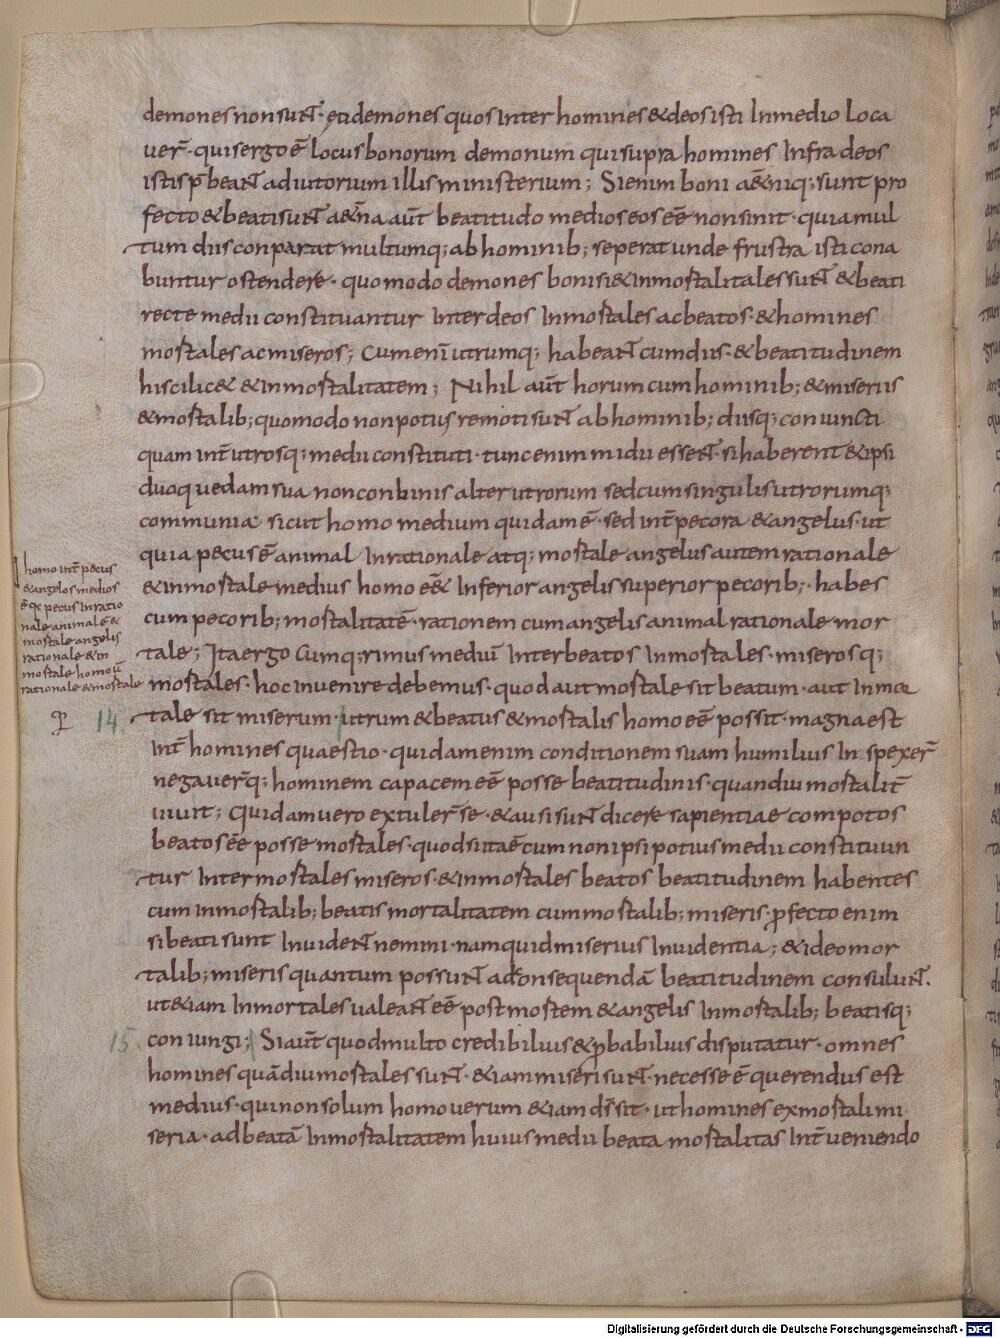 demones non sunt · et idemones quos inter homines & deos isti In medio loca
uer̄ · qui sergo ē locus bonorum demonum qui supra homines Infra deos
istis p̄beant adiutorium Illis ministerium ; Si enim boni a&̄niq; sunt pro
fecto & beati sunt a&̄na aūt beatitudo medios eos eē non sinit · quia mul
tum diis conparat multumq; ab hominib; seperat unde frustra isti cona
buntur ostendere · quomodo demones boni si & inmortalitales sunt & beati
recte medii constituantur Inter deos Inmortales ac beatos · & homines
mortales ac miseros ; Cum enī utrumq; habeant cum diis · & beatitudinem
hiscilic& & inmortalitatem ; Nihil aūt horum cum hominib; & miseriis
& mortalib; quomodo non potius remoti sunt ab hominib; diisq; coniuncti
quam int̄ utrosq; medii constituti · tunc enim midii essent · si haberent & ipsi
duo quedam sua non con binis alter utrorum sed cum singulis utrorumq;
communia sicut homo medium quidam ē · sed int̄ pecora & angelus · ut
quia pecus ē animal Inrationale atq; mortale angelus autem rationale
& inmortale medius homo eē& Inferior angelis superior pecorib; · habes
cum pecorib; mortalitatē · rationem cum angelis animal rationale mor
tale ; Ita ergo Cumq;rimus mediū Inter beatos Inmortales · miserosq;
mortales · hoc inuenire debemus · quod aut mortale sit beatum · aut Inmor
tale sit miserum · utrum & beatus & mortalis homo eē possit · magna est
Int̄ homines quaestio · quidam enim conditionem suam humilius In spexer̄
negauer̄q; hominem capacem eē posse beatitudinis · quandiu mortalit̄
uiuit ; Quidam uero extuler̄ se · & ausi sunt dicere sapientiae compotos
beatos eē posse mortales · quod si ita ē cum non ipsi potius medii constituun
tur Inter mortales miseros · & inmortales beatos beatitudinem habentes
cum inmortalib; beatis mortalitatem cum mortalib; miseris · ꝓfecto enim
si beati sunt Inuident nemini · nam quid miserius Inuidentia ; & ideo mor
talib; miseris quantum possunt ad consequendā beatitudinem consulunt ·
ut &iam Inmortales ualeant eē post mortem & angelis Inmortalib; beatisq;
coniungi ; Si aūt quod multo credibilius & ꝓbabilius disputatur · omnes
homines quādiu mortales sunt · &iam miseri sunt · necesse ē querendus est
medius · qui non solum homo uerum &iam d̄s sit · ut homines ex mortali mi
seria · ad beatā Inmortalitatem huius medii beata mortalitas Int̄ueniendo
homo int̄ pecus
& angelos medios
ē qa pecus Inratio
nale animale &
mortale angelis
rationale & in
mortale homoū
rationale & mortale
14.
15.
Digitalisierung gefördert durch die Deutsche Forschungsgemeinschaft - DFG